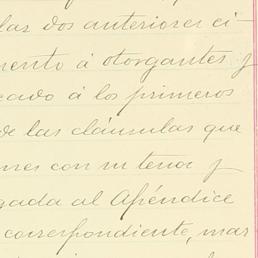 las dos anteriores ci-
mento á otorgantes y
cado á los primeros
de las cláusulas que
nres con su tenor y
gada al Apéndice
correspondiente, mar